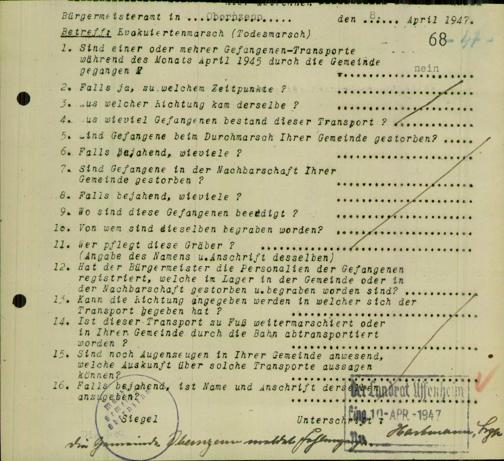 Bürgermeisteramt in ... den 8. April 1947.
Betreff: Evakuiertenmarsch (Todesmarsch)
68
1. Sind einer oder mehrer Gefangenen-Transporte
während des Monats April 1945 durch die Gemeinde
gegangen ? nein
2. Falls ja, zu welchem Zeitpunkte ?
3. Aus welcher Richtung kam derselbe ?
4. Aus wieviel Gefangenen bestand dieser Transport ?
5. Sind Gefangene beim Durchmarsch Ihrer Gemeinde gestorben?
6. Falls bejahend, wieviele ?
7. Sind Gefangene in der Nachbarschaft Ihrer
Gemeinde gestorben ?
8. Falls bejahend, wieviele ?
9. Wo sind diese Gefangenen beerdigt ?
10. Von wem sind dieselben begraben worden?
11. Wer pflegt diese Gräber ?
(Angabe des Namens u.Anschrift desselben)
12. Hat der Bürgermeister die Personalien der Gefangenen
registriert, welche im Lager in der Gemeinde oder in
der Nachbarschaft gestorben u.begraben worden sind?
13. Kann die Richtung angegeben werden in welcher sich der
Transport begeben hat ?
14. Ist dieser Transport zu Fuß weitermarschiert oder
in Ihrer Gemeinde durch die Bahn abtransportiert
worden ?
15. Sind noch Augenzeugen in Ihrer Gemeinde anwesend,
welche Auskunft über solche Transporte aussagen
können?
16. Falls bejahend, ist Name und Anschrift derselben
anzugeben?
Der Landrat Uffenheim
Eing. 10.APR.1947
Siegel Unterschrift :
die Gemeinde meldet Fehlanzeige Hartmann,